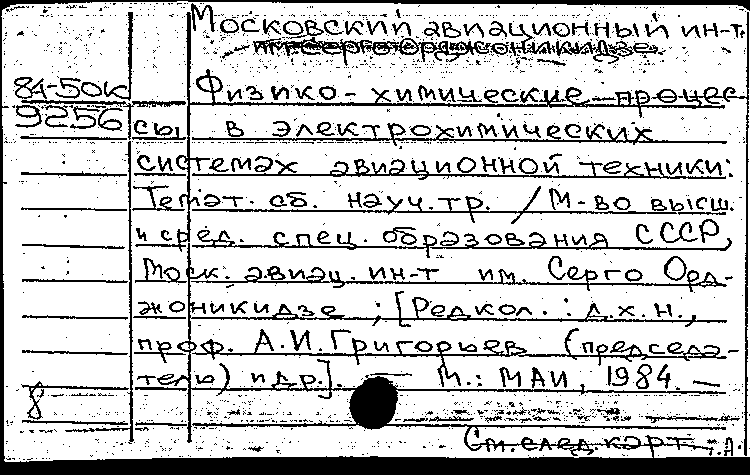 Московский авиационный ин-т.
им. Серго Орджоникидзе.
84-50к Физико-химические процес-
9256 сы в электрохимических
системах авиационной техники:
Темат. сб. науч. тр. / М-во высш.
и сред. спец. образования СССР,
Моск. авиац. ин-т им. Серго Орд-
жоникидзе ; [Редкол. : д.х.н.,
проф. А.И. Григорьев (председа-
тель) и др.]. — М.: МАИ, 1984. —
8
См. след. карт.